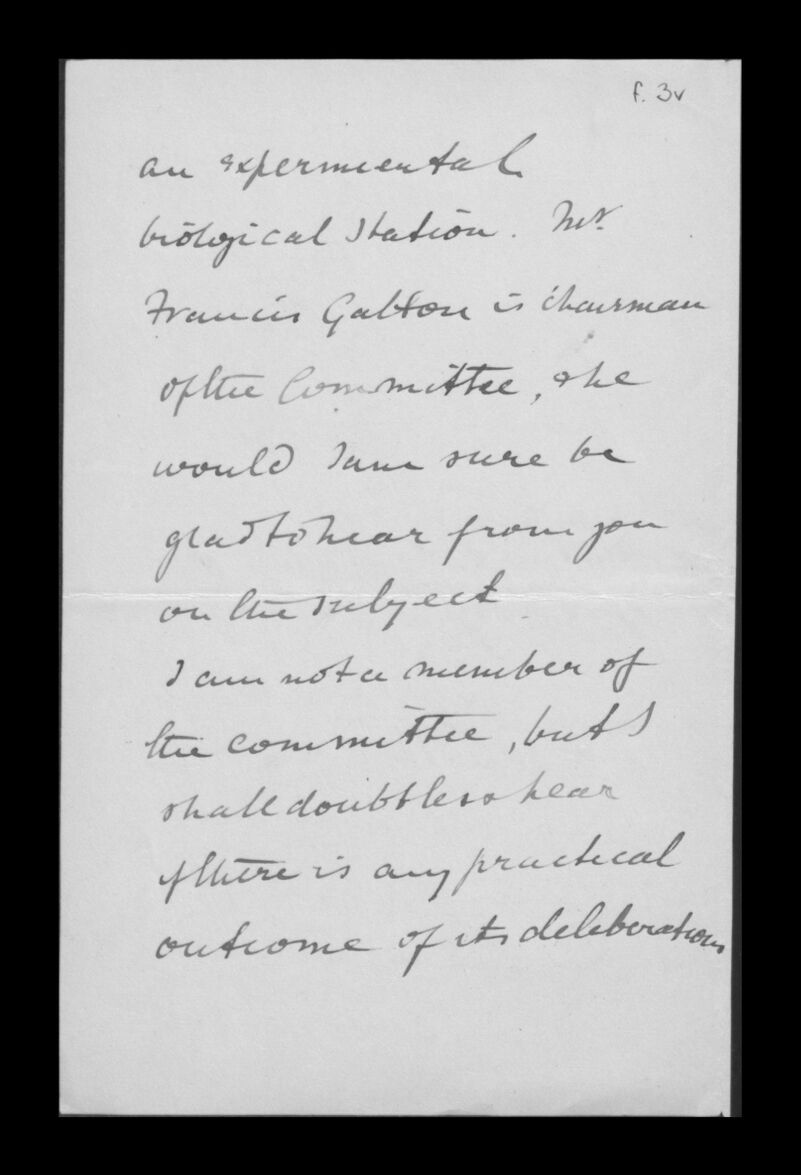 f. 3v
an experimental
biological station. Mr.
Francis Galton is chairman
of the Committee, & he
would I am sure be
glad to hear from you
on the subject
I am not a member of
the committee, but I
shall doubtless hear
if there is any practical
outcome of its deliberations